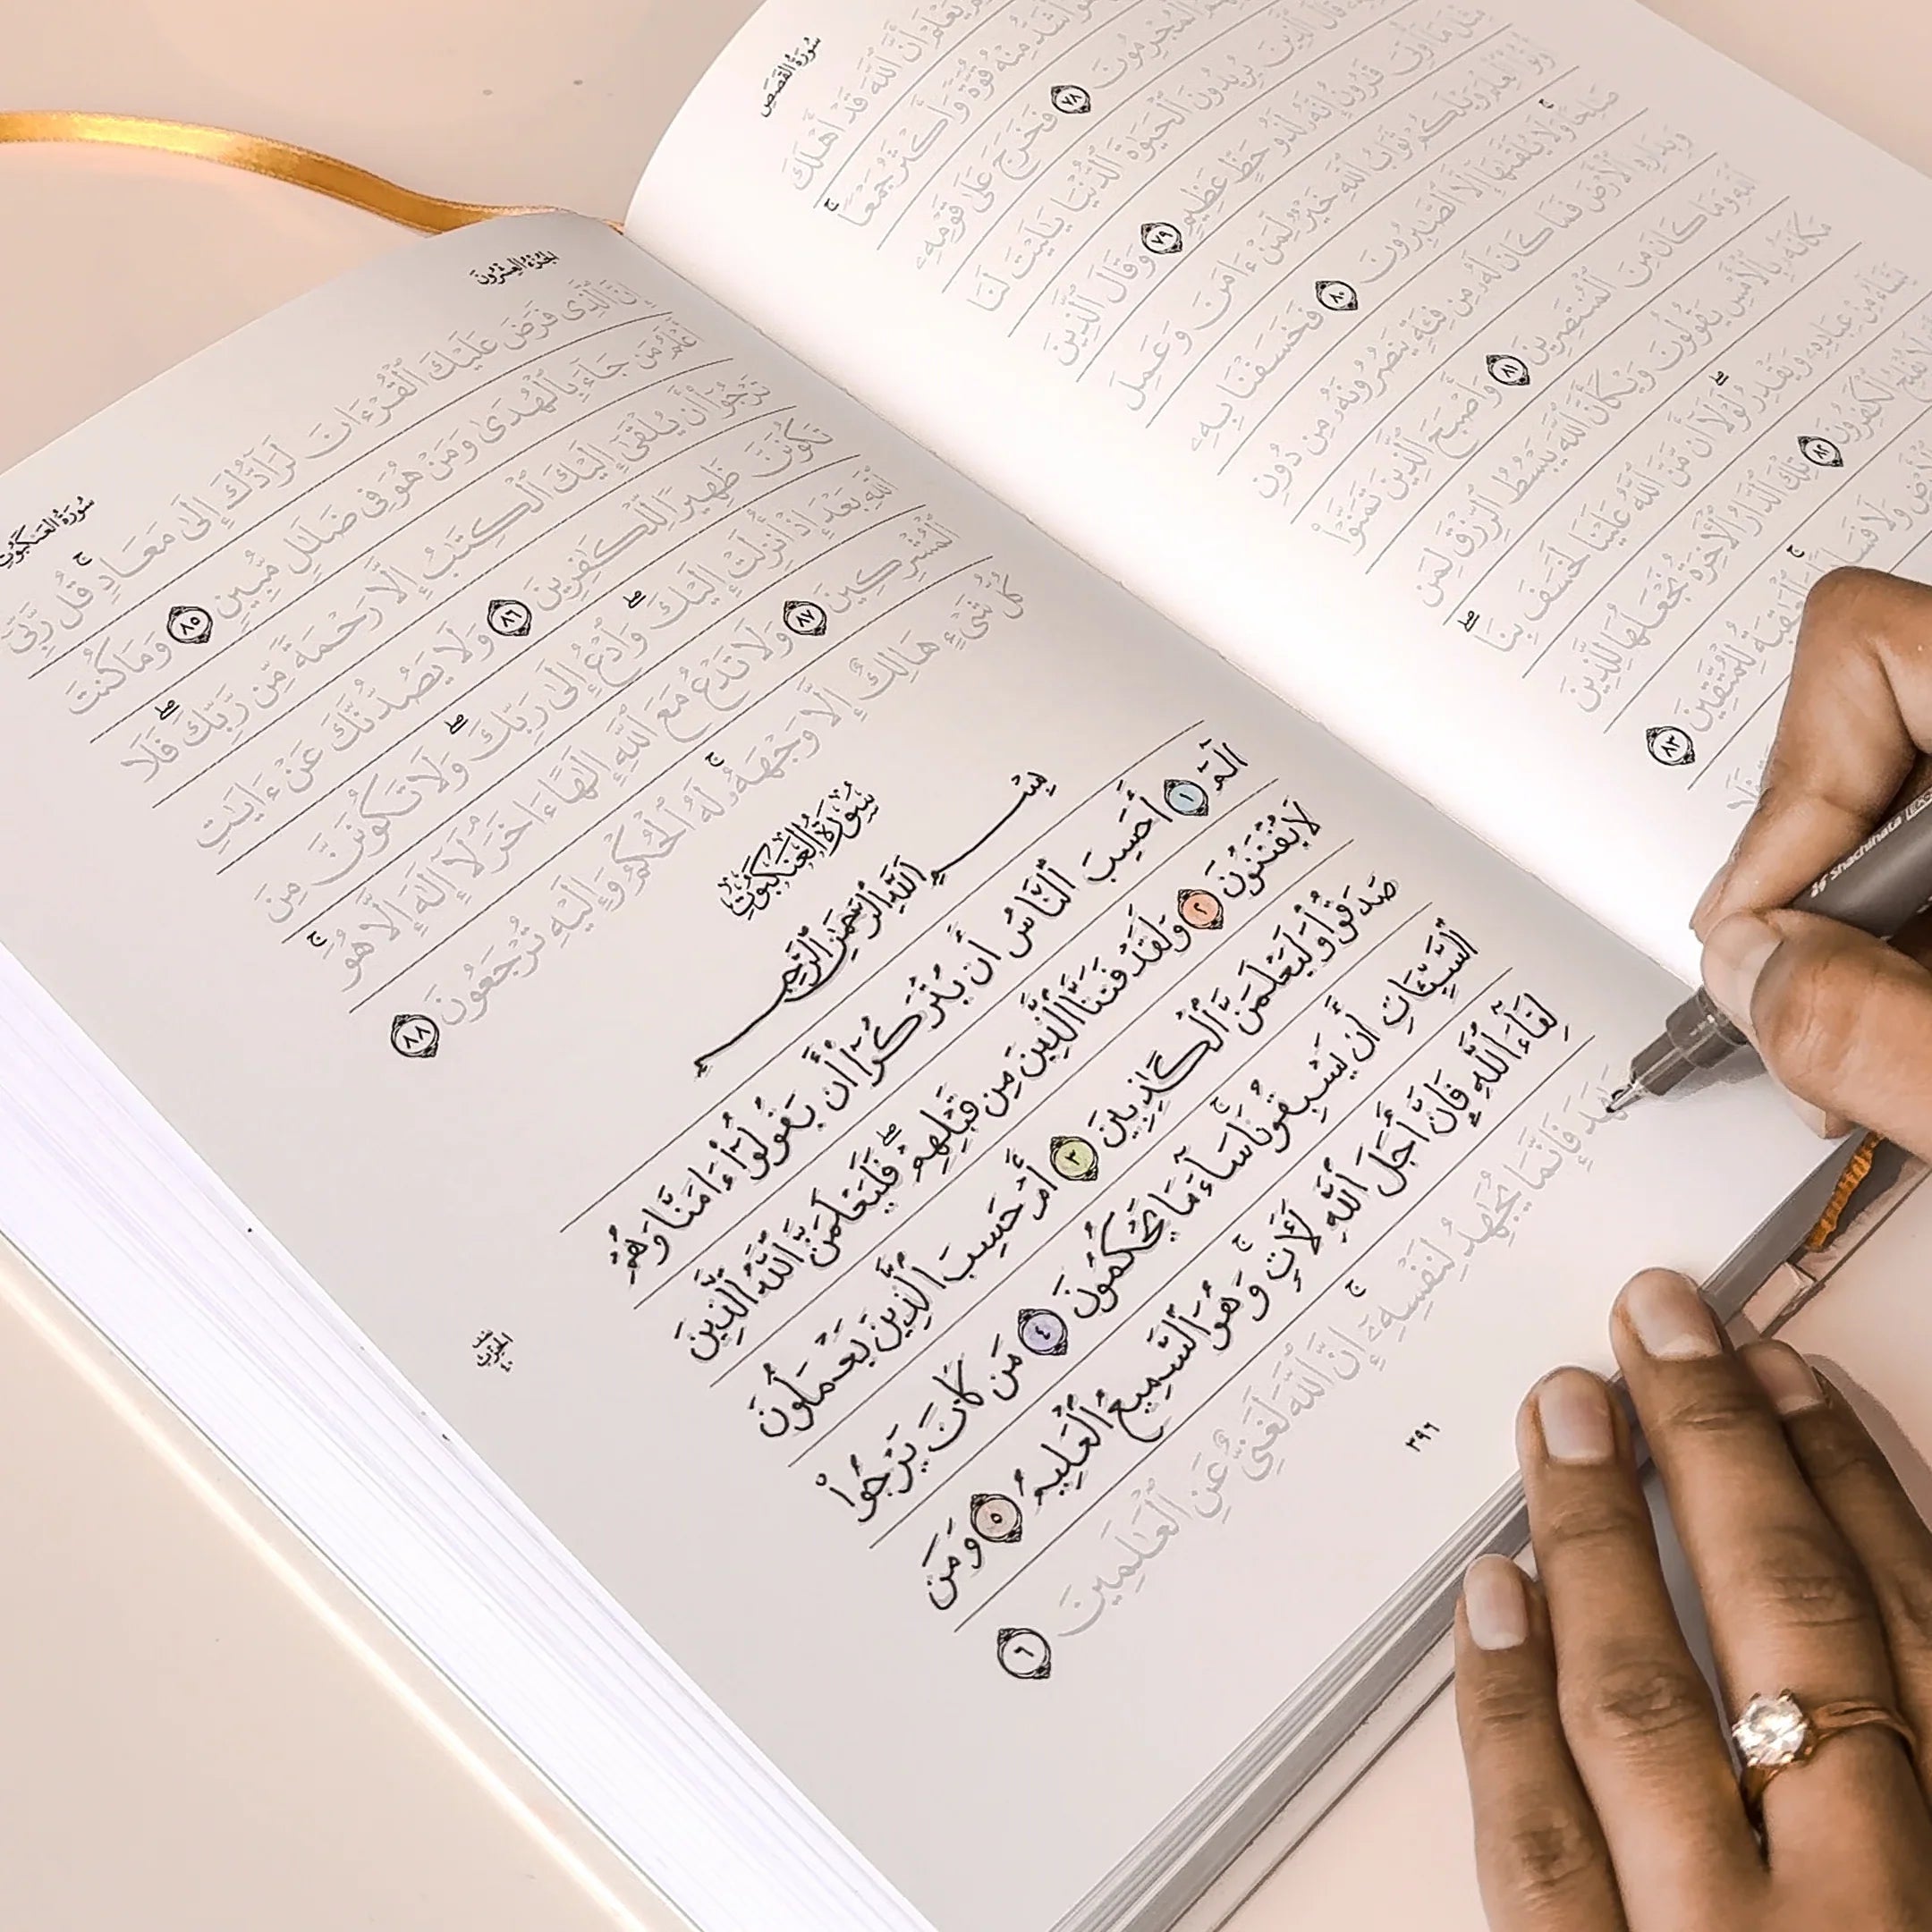 سُورَةُ القَصَصِ
يَعْلَمْ أَنَّ ٱللَّهَ قَدْ أَهْلَكَ
أَشَدُّ مِنْهُ قُوَّةً وَأَكْثَرُ جَمْعًا ۚ
ٱلْمُجْرِمُونَ ٧٨ فَخَرَجَ عَلَىٰ قَوْمِهِۦ
قَالَ ٱلَّذِينَ يُرِيدُونَ ٱلْحَيَوٰةَ ٱلدُّنْيَا يَٰلَيْتَ لَنَا
مِثْلَ مَآ أُوتِىَ قَٰرُونُ إِنَّهُۥ لَذُو حَظٍّ عَظِيمٍ ٧٩ وَقَالَ ٱلَّذِينَ
أُوتُوا۟ ٱلْعِلْمَ وَيْلَكُمْ ثَوَابُ ٱللَّهِ خَيْرٌ لِّمَنْ ءَامَنَ وَعَمِلَ
صَٰلِحًا ۚ وَلَا يُلَقَّىٰهَآ إِلَّا ٱلصَّٰبِرُونَ ٨٠ فَخَسَفْنَا بِهِۦ
وَبِدَارِهِ ٱلْأَرْضَ فَمَا كَانَ لَهُۥ مِن فِئَةٍ يَنصُرُونَهُۥ مِن دُونِ
ٱللَّهِ وَمَا كَانَ مِنَ ٱلْمُنتَصِرِينَ ٨١ وَأَصْبَحَ ٱلَّذِينَ تَمَنَّوْا۟
مَكَانَهُۥ بِٱلْأَمْسِ يَقُولُونَ وَيْكَأَنَّ ٱللَّهَ يَبْسُطُ ٱلرِّزْقَ لِمَن
يَشَآءُ مِنْ عِبَادِهِۦ وَيَقْدِرُ ۖ لَوْلَآ أَن مَّنَّ ٱللَّهُ عَلَيْنَا لَخَسَفَ بِنَا ۖ
لَا يُفْلِحُ ٱلْكَٰفِرُونَ ٨٢ تِلْكَ ٱلدَّارُ ٱلْءَاخِرَةُ نَجْعَلُهَا لِلَّذِينَ
وَلَا فَسَادًا ۚ وَٱلْعَٰقِبَةُ لِلْمُتَّقِينَ ٨٣
الجُزْءُ العِشْرُونَ
سُورَةُ العَنكَبُوتِ
إِنَّ ٱلَّذِى فَرَضَ عَلَيْكَ ٱلْقُرْءَانَ لَرَآدُّكَ إِلَىٰ مَعَادٍ ۚ قُل رَّبِّىٓ
أَعْلَمُ مَن جَآءَ بِٱلْهُدَىٰ وَمَنْ هُوَ فِى ضَلَٰلٍ مُّبِينٍ ٨٥ وَمَا كُنتَ
تَرْجُوٓا۟ أَن يُلْقَىٰٓ إِلَيْكَ ٱلْكِتَٰبُ إِلَّا رَحْمَةً مِّن رَّبِّكَ ۖ فَلَا
تَكُونَنَّ ظَهِيرًا لِّلْكَٰفِرِينَ ٨٦ وَلَا يَصُدُّنَّكَ عَنْ ءَايَٰتِ
ٱللَّهِ بَعْدَ إِذْ أُنزِلَتْ إِلَيْكَ ۖ وَٱدْعُ إِلَىٰ رَبِّكَ ۖ وَلَا تَكُونَنَّ مِنَ
ٱلْمُشْرِكِينَ ٨٧ وَلَا تَدْعُ مَعَ ٱللَّهِ إِلَٰهًا ءَاخَرَ ۘ لَآ إِلَٰهَ إِلَّا هُوَ ۚ
كُلُّ شَىْءٍ هَالِكٌ إِلَّا وَجْهَهُۥ ۚ لَهُ ٱلْحُكْمُ وَإِلَيْهِ تُرْجَعُونَ ٨٨
سُورَةُ العَنكَبُوتِ
بِسْمِ ٱللَّهِ ٱلرَّحْمَٰنِ ٱلرَّحِيمِ
الٓمٓ ١ أَحَسِبَ ٱلنَّاسُ أَن يُتْرَكُوٓا۟ أَن يَقُولُوٓا۟ ءَامَنَّا وَهُمْ
لَا يُفْتَنُونَ ٢ وَلَقَدْ فَتَنَّا ٱلَّذِينَ مِن قَبْلِهِمْ ۖ فَلَيَعْلَمَنَّ ٱللَّهُ ٱلَّذِينَ
صَدَقُوا۟ وَلَيَعْلَمَنَّ ٱلْكَٰذِبِينَ ٣ أَمْ حَسِبَ ٱلَّذِينَ يَعْمَلُونَ
ٱلسَّيِّـَٔاتِ أَن يَسْبِقُونَا ۚ سَآءَ مَا يَحْكُمُونَ ٤ مَن كَانَ يَرْجُوا۟
لِقَآءَ ٱللَّهِ فَإِنَّ أَجَلَ ٱللَّهِ لَـَٔاتٍ ۚ وَهُوَ ٱلسَّمِيعُ ٱلْعَلِيمُ ٥ وَمَن
جَٰهَدَ فَإِنَّمَا يُجَٰهِدُ لِنَفْسِهِۦٓ ۚ إِنَّ ٱللَّهَ لَغَنِىٌّ عَنِ ٱلْعَٰلَمِينَ ٦
الحزب
٤٠
٣٩٦
Shachihata